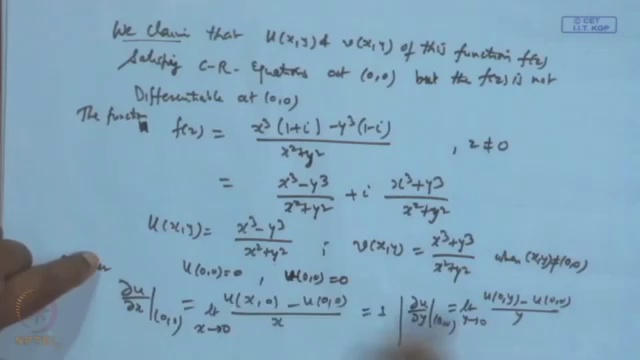 © CET
I.I.T. KGP
We claim that u(x,y) & v(x,y) of this function f(z)
Satisfying C-R- Equations at (0,0) but the f(z) is not
Differentiable at (0,0)
The function f(z) = x³(1+i) - y³(1-i) / x²+y² , z ≠ 0
= x³-y³ / x²+y² + i x³+y³ / x²+y²
u(x,y) = x³-y³ / x²+y² ; v(x,y) = x³+y³ / x²+y² when (x,y)≠(0,0)
u(0,0)=0 , v(0,0)=0
∂u/∂x |(0,0) = lt x→0 u(x,0) - u(0,0) / x = 1 | ∂u/∂y |(0,0) = lt y→0 u(0,y) - u(0,0) / y
NPTEL